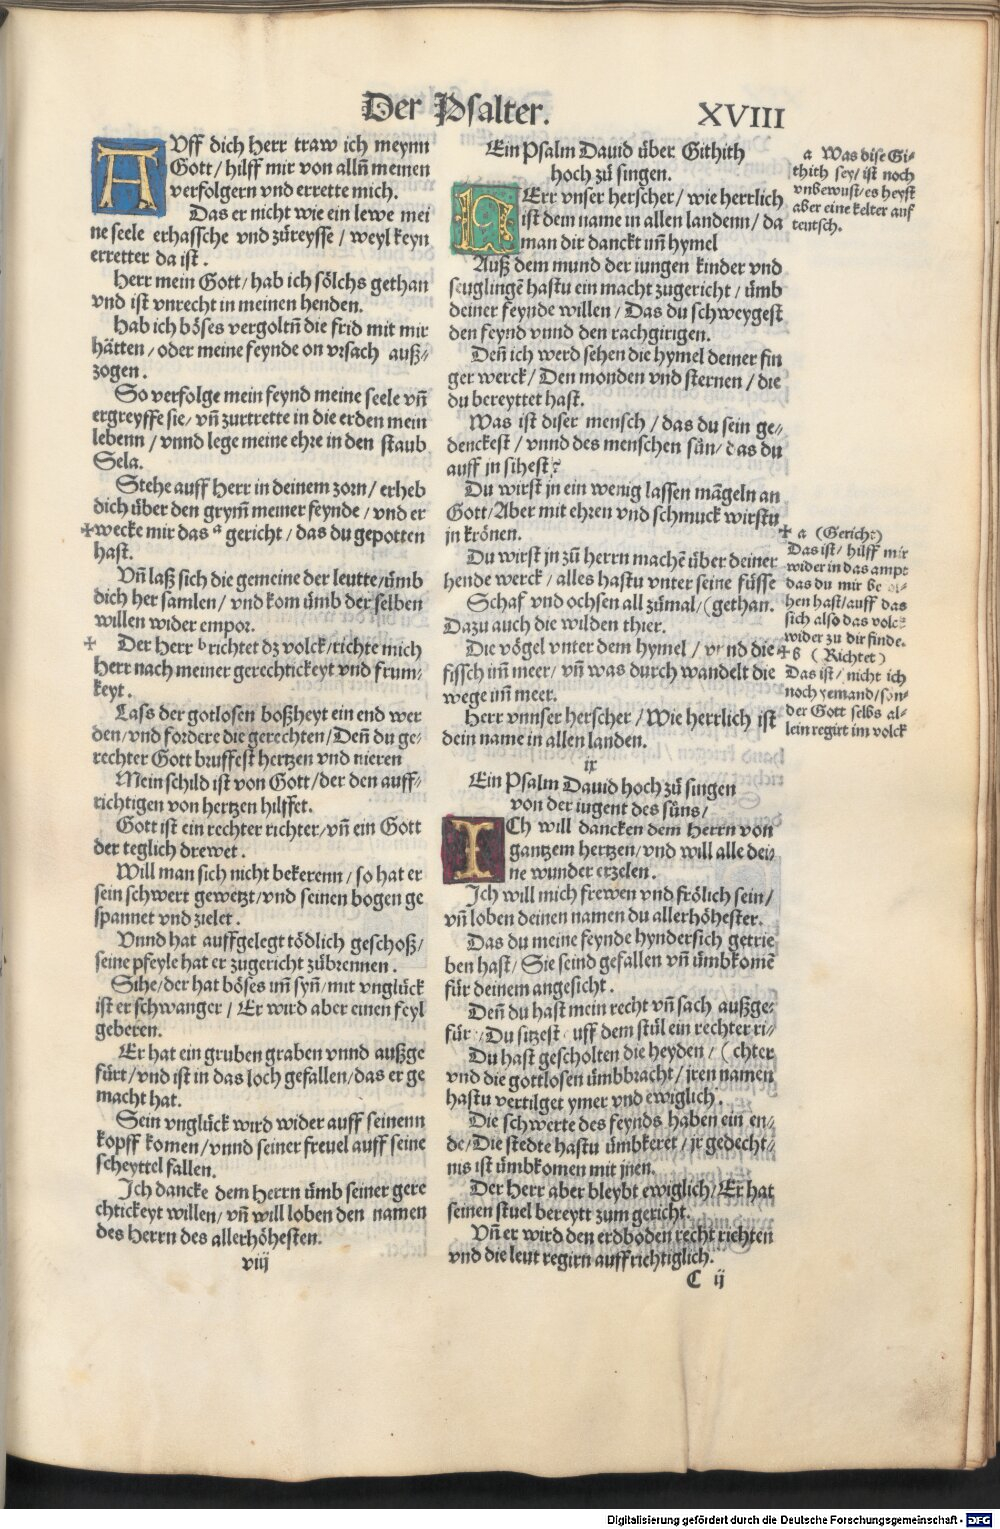 Der Psalter.
XVIII
AVff dich Herr traw ich meynn
Gott/ hilff mir von alln̄ meinen
verfolgern vnd errette mich.
Das er nicht wie ein lewe mei
ne seele erhassche vnd zůreysse / weyl keyn
erretter da ist.
Herr mein Gott/ hab ich sölchs gethan
vnd ist vnrecht in meinen henden.
Hab ich böses vergoltn̄ die frid mit mir
hätten/ oder meine feynde on vrsach auß⸗
zogen.
So verfolge mein feynd meine seele vn̄
ergreyffe sie/ vn̄ zurtrette in die erden mein
lebenn / vnnd lege meine ehre in den staub
Sela.
Stehe auff Herr in deinem zorn/ erheb
dich über den grym̄ meiner feynde / vnd er
✝wecke mir das ᵃ gericht / das du gepotten
hast.
Vn̄ laß sich die gemeine der leutte/ümb
dich her samlen / vnd kom ümb der selben
willen wider empor.
✝ Der Herr ᵇrichtet dz volck/richte mich
Herr nach meiner gerechtickeyt vnd frum⸗
keyt.
Lass der gotlosen boßheyt ein end wer
den/vnd fordere die gerechten/Den̄ du ge⸗
rechter Gott bruffest hertzen vnd nieren
Mein schild ist von Gott/der den auff⸗
richtigen von hertzen hilffet.
Gott ist ein rechter richter/vn̄ ein Gott
der teglich drewet.
Will man sich nicht bekerenn / so hat er
sein schwert gewetzt/vnd seinen bogen ge
spannet vnd zielet.
Vnnd hat auffgelegt tödlich geschoß/
seine pfeyle hat er zugericht zůbrennen.
Sihe/der hat böses im̄ syn̄/mit vnglück
ist er schwanger / Er wird aber einen feyl
geberen.
Er hat ein gruben graben vnnd außge
fürt/vnd ist in das loch gefallen/das er ge
macht hat.
Sein vnglück wird wider auff seinenn
kopff komen/vnnd seiner freuel auff seine
scheyttel fallen.
Ich dancke dem Herrn ümb seiner gere
chtickeyt willen/ vn̄ will loben den namen
des Herrn des allerhöhesten.
viij
Ein Psalm Dauid über Githith
hoch zů singen.
HErr vnser herscher/ wie herrlich
ist dem name in allen landenn/ da
man dir danckt un̄ hymel
Auß dem mund der iungen kinder vnd
seuglingē hastu ein macht zugericht / ümb
deiner feynde willen / Das du schweygest
den feynd vnnd den rachgirigen.
Den̄ ich werd sehen die hymel deiner fin
ger werck/ Den monden vnd sternen / die
du bereyttet hast.
Was ist diser mensch / das du sein ge⸗
denckest / vnnd des menschen sůn/ das du
auff jn sihest?
Du wirst jn ein wenig lassen māgeln an
Gott/Aber mit ehren vnd schmuck wirstu
jn krönen.
Du wirst jn zů herrn machē über deiner
hende werck / alles hastu vnter seine füsse
Schaf vnd ochsen all zůmal/(gethan.
Dazu auch die wilden thier.
Die vögel vnter dem hymel / vnnd die
fissch im̄ meer/ vn̄ was durch wandelt die
wege im̄ meer.
Herr vnnser herscher / Wie herrlich ist
dein name in allen landen.
ix
Ein Psalm Dauid hoch zů singen
von der iugent des sůns/
ICh will dancken dem Herrn von
gantzem hertzen/vnd will alle dei⸗
ne wunder erzelen.
Ich will mich frewen vnd frölich sein/
vn̄ loben deinen namen du allerhöhester.
Das du meine feynde hyndersich getrie
ben hast/ Sie seind gefallen vn̄ ümbkomē
für deinem angesicht.
Den̄ du hast mein recht vn̄ sach außge⸗
für / Du sitzest uff dem stůl ein rechter ri⸗
Du hast gescholten die heyden / (chter
vnd die gottlosen ümbbracht/ jren namen
hastu vertilget ymer vnd ewiglich.
Die schwerte des feynds haben ein en⸗
de/Die stedte hastu ümbkeret / jr gedecht⸗
nis ist ümbkomen mit jnen.
Der Herr aber bleybt ewiglich/Er hat
seinen stuel bereytt zum gericht.
Vn̄ er wird den erdboden recht richten
vnd die leut regirn auffrichtiglich.
C ij
a Was dise Gi⸗
thith sey/ ist noch
vnbewust/es heyst
aber eine kelter auf
teutsch.
✝ a (Gericht)
Das ist/ hilff mir
wider in das ampt
das du mir be
hen hast/auff das
sich also das volck
wider zu dir finde.
✝ b (Richtet)
Das ist/ nicht ich
noch yemand/son⸗
der Gott selbs al⸗
lein regirt im volck
Digitalisierung gefördert durch die Deutsche Forschungsgemeinschaft - DFG